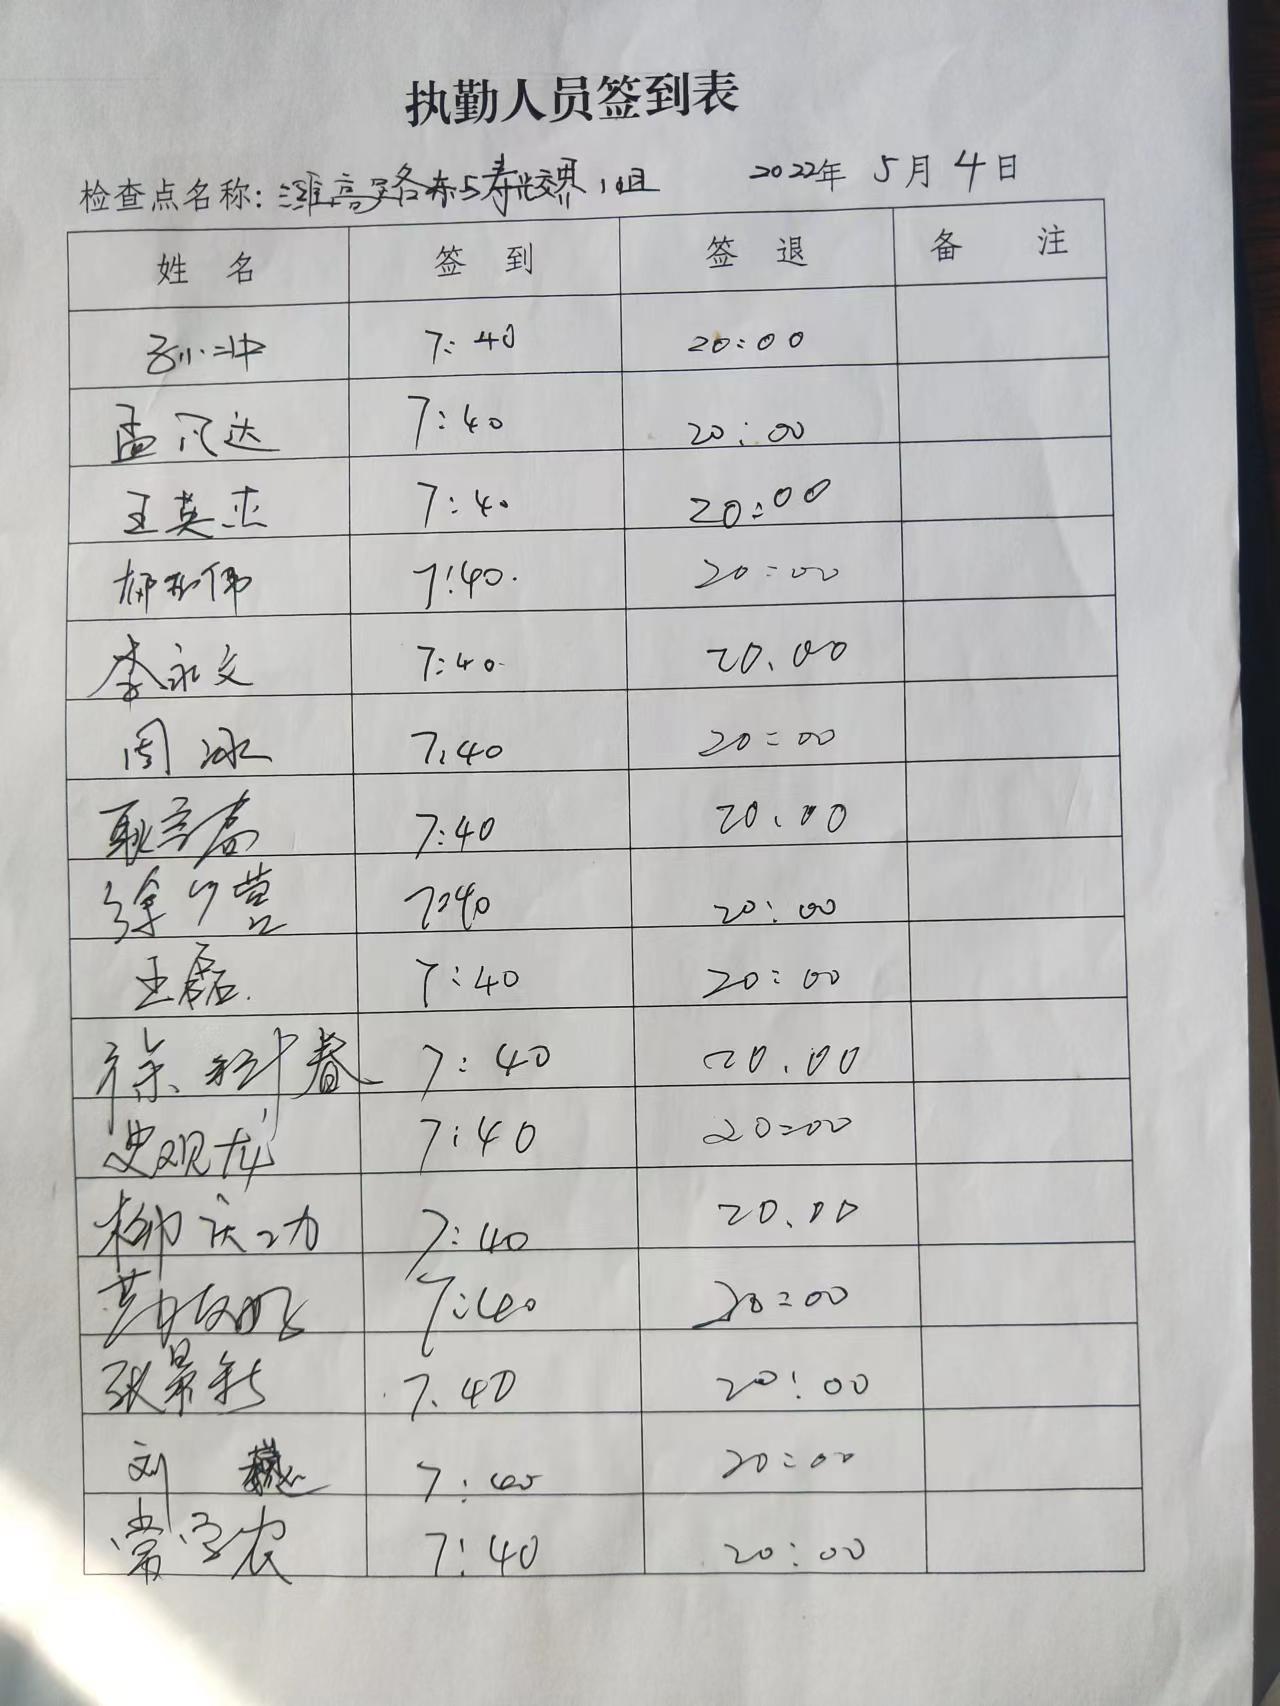 执勤人员签到表
检查点名称: 潍高路东与寿光交界 1组 2022年 5月 4日
姓 名 签 到 签 退 备 注
7:40 20:00
孟凡达 7:40 20:00
王英杰 7:40 20:00
7:40. 20:00
李永文 7:40. 20.00
周冰 7:40 20:00
耿 7:40 20.00
徐 7:40 20:00
王磊. 7:40 20:00
徐 春 7:40 20.00
史观龙 7:40 20:00
柳庆功 7:40 20.00
7:40 20:00
张景新 7.40 20:00
刘 7:40 20:00
常学农 7:40 20:00